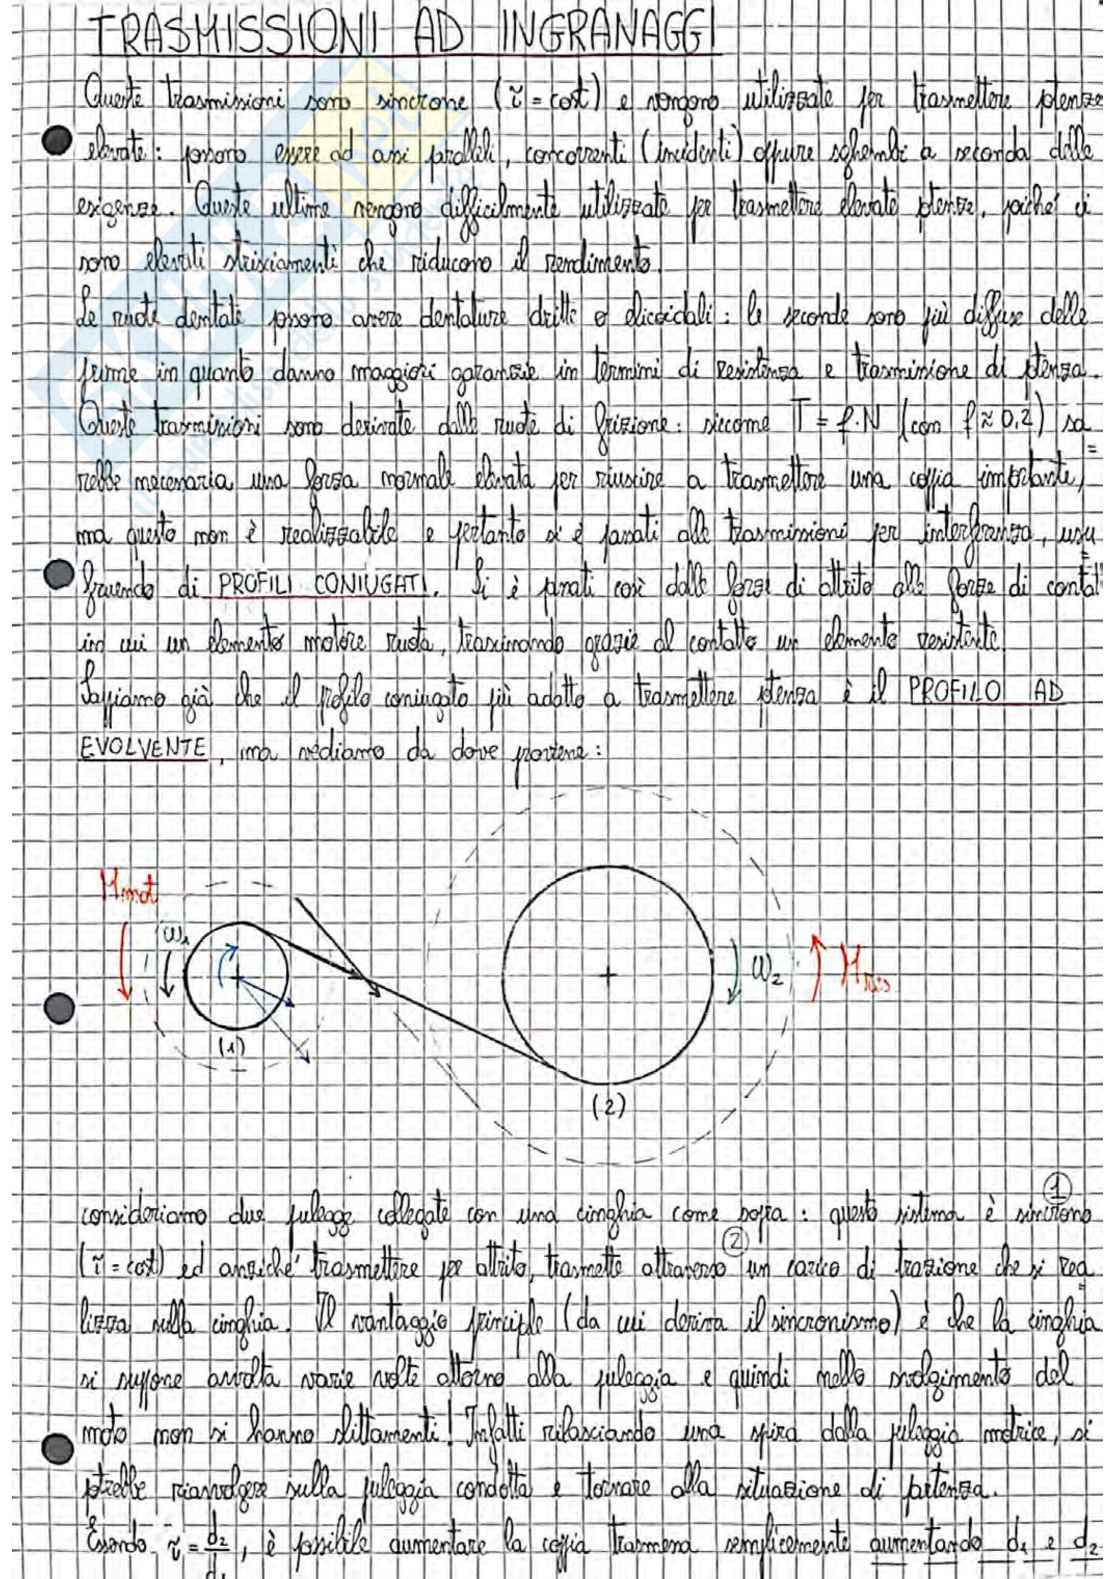 TRASMISSIONI AD INGRANAGGI
Queste trasmissioni sono sincrone (τ = cost) e vengono utilizzate per trasmettere potenze
elevate: possono essere ad assi paralleli, concorrenti (incidenti) oppure sghembi a seconda delle
esigenze. Queste ultime vengono difficilmente utilizzate per trasmettere elevate potenze, poiché vi
sono elevati strisciamenti che riducono il rendimento.
Le ruote dentate possono avere dentature dritte o elicoidali: le seconde sono più diffuse delle
prime in quanto danno maggiori garanzie in termini di resistenza e trasmissione di potenza.
Queste trasmissioni sono derivate dalle ruote di frizione: siccome T = f·N (con f ≈ 0,2) sa
rebbe necessaria una forza normale elevata per riuscire a trasmettere una coppia importante,
ma questo non è realizzabile e pertanto si è passati alle trasmissioni per interferenza, usu
fruendo di PROFILI CONIUGATI. Si è passati così dalle forze di attrito alle forze di contat
in cui un elemento motore ruota, trascinando grazie al contatto un elemento resistente.
Sappiamo già che il profilo coniugato più adatto a trasmettere potenza è il PROFILO AD
EVOLVENTE, ma vediamo da dove proviene:
Mmot
ω1
(1)
ω2
MRes
(2)
consideriamo due pulegge collegate con una cinghia come sopra: questo sistema è ① sincrono
(τ = cost) ed anziché trasmettere per attrito, trasmette attraverso ② un carico di trazione che si rea
lizza sulla cinghia. Il vantaggio principle (da cui deriva il sincronismo) è che la cinghia
si suppone avvolta varie volte attorno alla puleggia e quindi nello svolgimento del
moto non si hanno slittamenti! Infatti rilasciando una spira dalla puleggia motrice, si
potrebbe riavvolgere sulla puleggia condotta e tornare alla situazione di partenza.
Essendo τ = d2/d1, è possibile aumentare la coppia trasmessa semplicemente aumentando d1 e d2